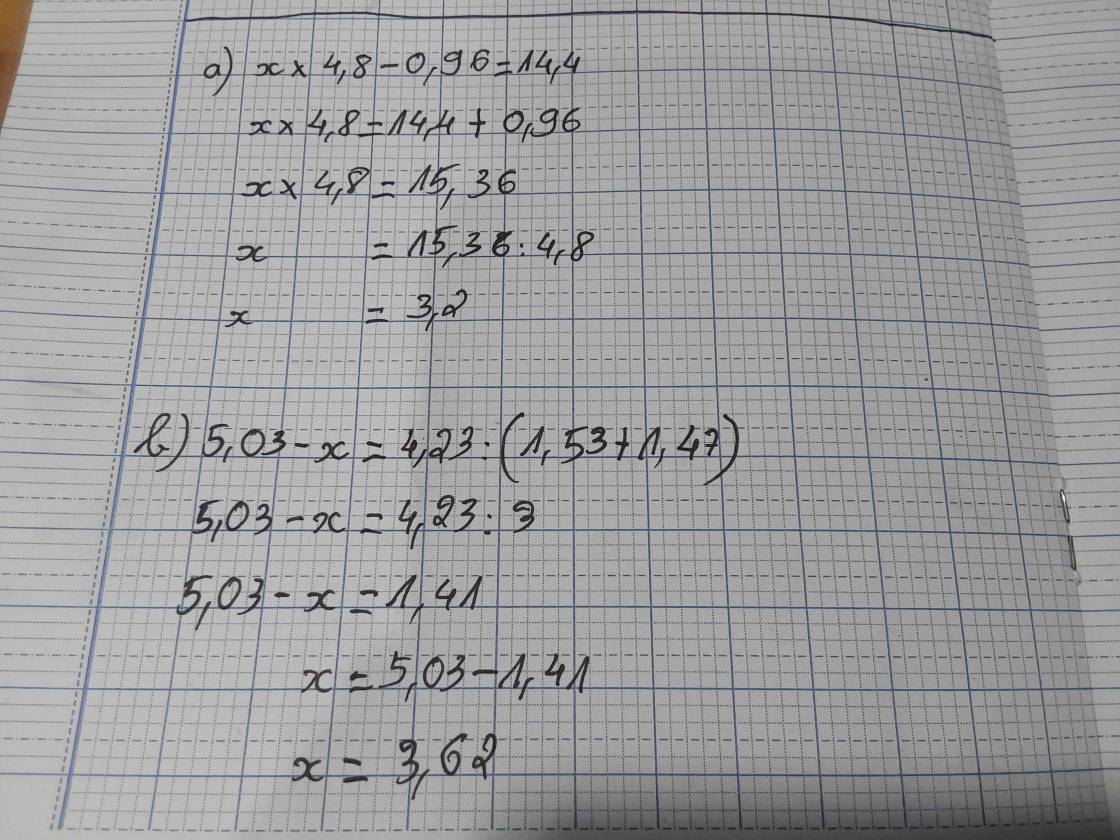 a) x × 4,8 - 0,96 = 14,4
x × 4,8 = 14,4 + 0,96
x × 4,8 = 15,36
x = 15,36 : 4,8
x = 3,2
b) 5,03 - x = 4,23 : (1,53 + 1,47)
5,03 - x = 4,23 : 3
5,03 - x = 1,41
x = 5,03 - 1,41
x = 3,62